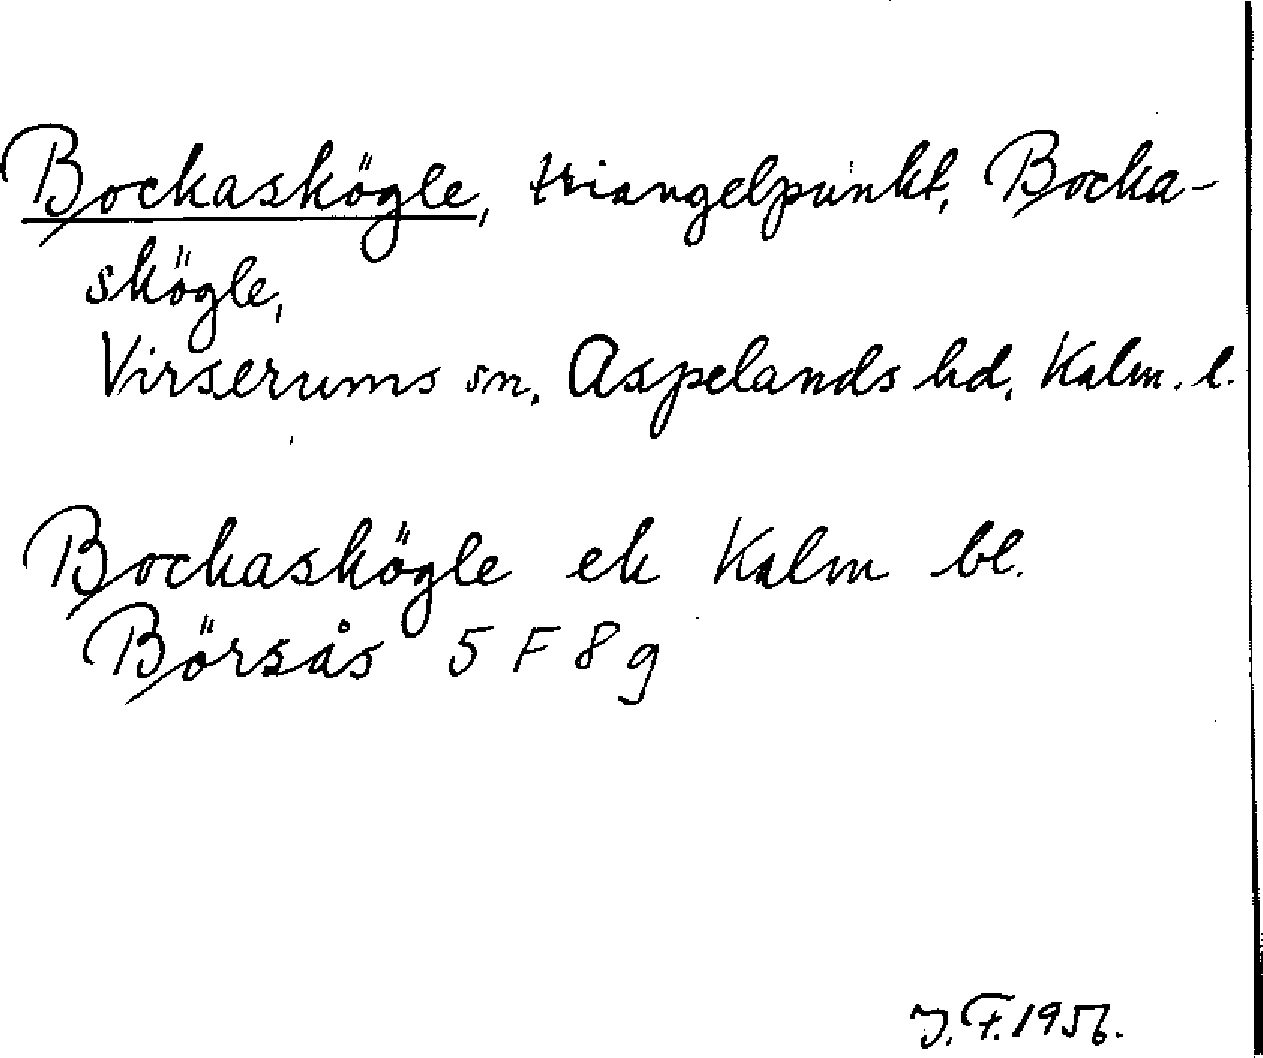 Bockaskögle, triangelpunkt, Bocka-
skögle,
Virserums sn, Aspelands hd, Kalm. l.
Bockaskögle ek Kalm bl.
Börsås 5 F 8 g
J. F. 1956.